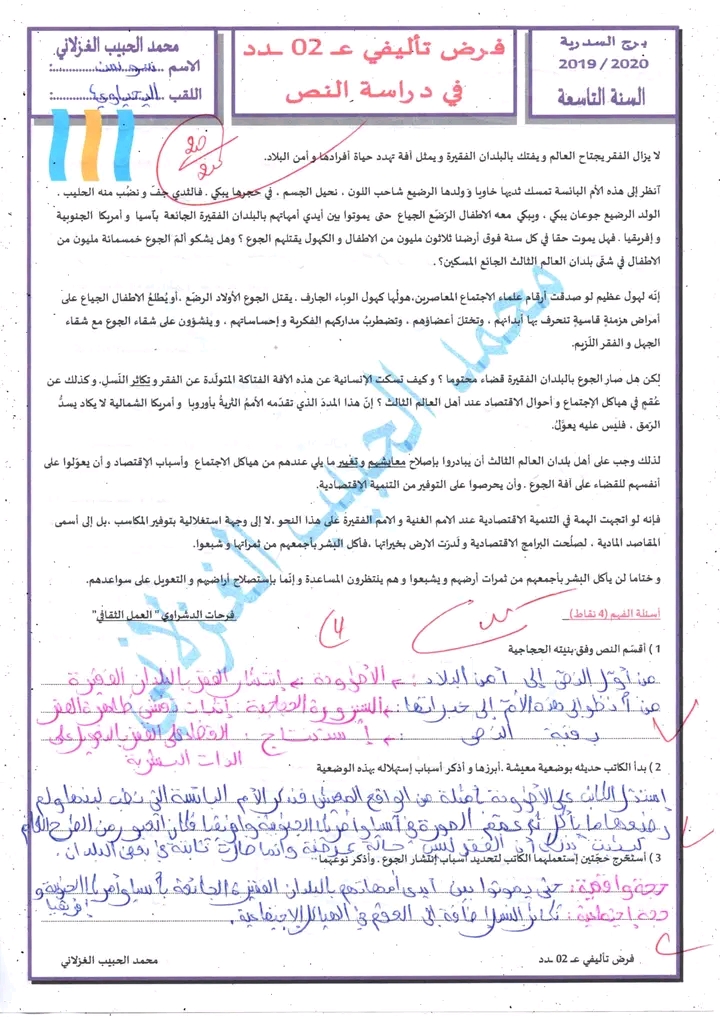 برج السدرية
2019/2020
السنة التاسعة
فرض تأليفي عـ 02 ـدد
في دراسة النص
محمد الحبيب الغزلاني
الاسم
اللقب
20
20
لا يزال الفقر يجتاح العالم و يفتك بالبلدان الفقيرة و يمثل آفة تهدد حياة أفرادها و أمن البلاد.
أنظر إلى هذه الأم البائسة تمسك ثديها خاويا و ولدها الرضيع شاحب اللون ، نحيل الجسم ، في حجرها يبكي . فالثدي جفّ و نضُب منه الحليب .
الولد الرضيع جوعان يبكي ، ويبكي معه الاطفال الرَضع الجياع حتى يموتوا بين أيدي أمهاتهم بالبلدان الفقيرة الجائعة بآسيا و أمريكا الجنوبية
و إفريقيا . فهل يموت حقا في كل سنة فوق أرضنا ثلاثون مليون من الاطفال و الكهول يقتلهم الجوع ؟ وهل يشكو ألمَ الجوع خمسمائة مليون من
الاطفال في شتّى بلدان العالم الثالث الجائع المسكين؟ .
إنّه لهول عظيم لو صدقت أرقام علماء الاجتماع المعاصرين،هولُها كهول الوباء الجارف . يقتل الجوع الأولاد الرضّع ،أو يُطلعُ الاطفال الجياع على
أمراض هزمَنةٍ قاسيةٍ تنحرف بها أبدانهم ، وتختلّ أعضاؤهم ، وتضطربُ مداركهم الفكرية و إحساساتهم ، و ينشؤون على شقاء الجوع مع شقاء
الجهل و الفقر اللّزيم.
لكن هل صار الجوع بالبلدان الفقيرة قضاء محتوما ؟ و كيف تسكت الإنسانية عن هذه الآفة الفتاكة المتولّدة عن الفقر و تكاثر النّسل. و كذلك عن
عُقمٍ في هياكل الإجتماع و أحوال الاقتصاد عند أهل العالم الثالث ؟ إنّ هذا المددَ الذي تقدّمه الأمم الثريةُ بأوروبا و أمريكا الشمالية لا يكاد يسدُّ
الرّمق ، فليْس عليه يعوَّلُ.
لذلك وجب على أهل بلدان العالم الثالث أن يبادروا بإصلاح معايشهم و تغيير ما يلي عندهم من هياكل الاجتماع وأسباب الإقتصاد و أن يعوّلوا على
أنفسهم للقضاء على آفة الجوع . وأن يحرصوا على التوفير من التنمية الاقتصادية.
فإنه لو اتجهت الهمة في التنمية الاقتصادية عند الامم الغنية و الامم الفقيرة على هذا النحو ،لا إلى وجهة استغلالية بتوفير المكاسب ،بل إلى أسمى
المقاصد المادية ، لصلُحت البرامج الاقتصادية و لَدرّت الارض بخيراتها ،فأكل البشر بأجمعهم من ثمراتها و شبعوا.
و ختاما لن يأكل البشر بأجمعهم من ثمرات أرضهم و يشبعوا و هم ينتظرون المساعدة و إنّما بإستصلاح أراضيهم و التعويل على سواعدهم.
فرحات الدشراوي " العمل الثقافي"
أسئلة الفهم (4 نقاط)
4
1 ) أقسّم النص وفق بنيته الحجاجية
من أوّل النص إلى أمن البلاد : الأطروحة إنتشار الفقر بالبلدان الفقيرة
من أنظر إلى هذه الأم إلى خيراتها : السيرورة الحجاجية : إثبات تفشي ظاهرة الفقر
بقية النص : إستنتاج القضاء على الفقر بالتعويل على
الذات البشرية
2 ) بدأ الكاتب حديثه بوضعية معيشة .أبرزها و أذكر أسباب إستهلاله بهذه الوضعية
استدل الكاتب على الأطروحة بأمثلة من الواقع المعيش فذكر الأم البائسة التي نضب لبنها ولم
3 ) أستخرج حجّتين إستعملهما الكاتب لتحديد أسباب إنتشار الجوع . وأذكر نوعهما
حجة واقعية : حتى يموتوا بين أيدي أمهاتهم بالبلدان الفقيرة الجائعة بآسيا و أمريكا الجنوبية و
إفريقيا
حجة إجتماعية : تكاثر النسل إضافة إلى العقم في الهياكل الاجتماعية.
فرض تأليفي عـ 02 ـدد
محمد الحبيب الغزلاني
محمد الحبيب الغزلاني